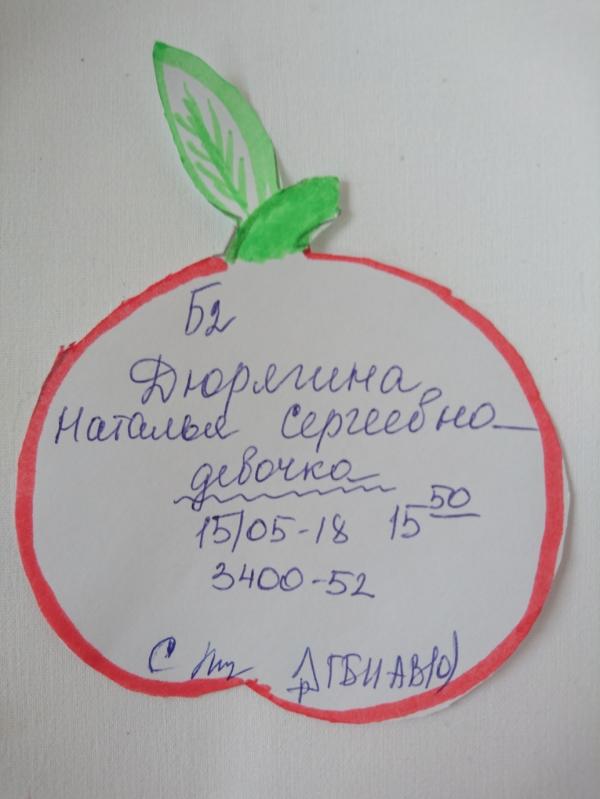 Б2
Дюрягина
Наталья Сергеевна
девочка
15/05-18 15 50
3400-52
С